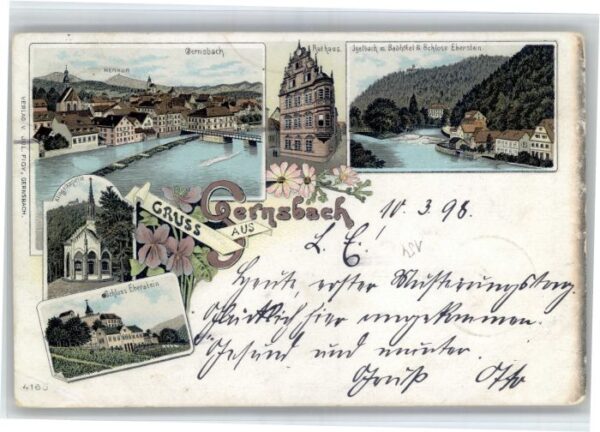 Gernsbach
MERKUR
Rathaus.
Igelbach m. Badhôtel & Schloss Eberstein.
VERLAG V. JUL. PIGY, GERNSBACH.
Schloss Eberstein
GRUSS
AUS
Gernsbach
10. 3. 98.
L. E.!
Heute, erster Musterungstag.
Glücklich hier angekommen.
Gesund und munter.
Gruß Otto